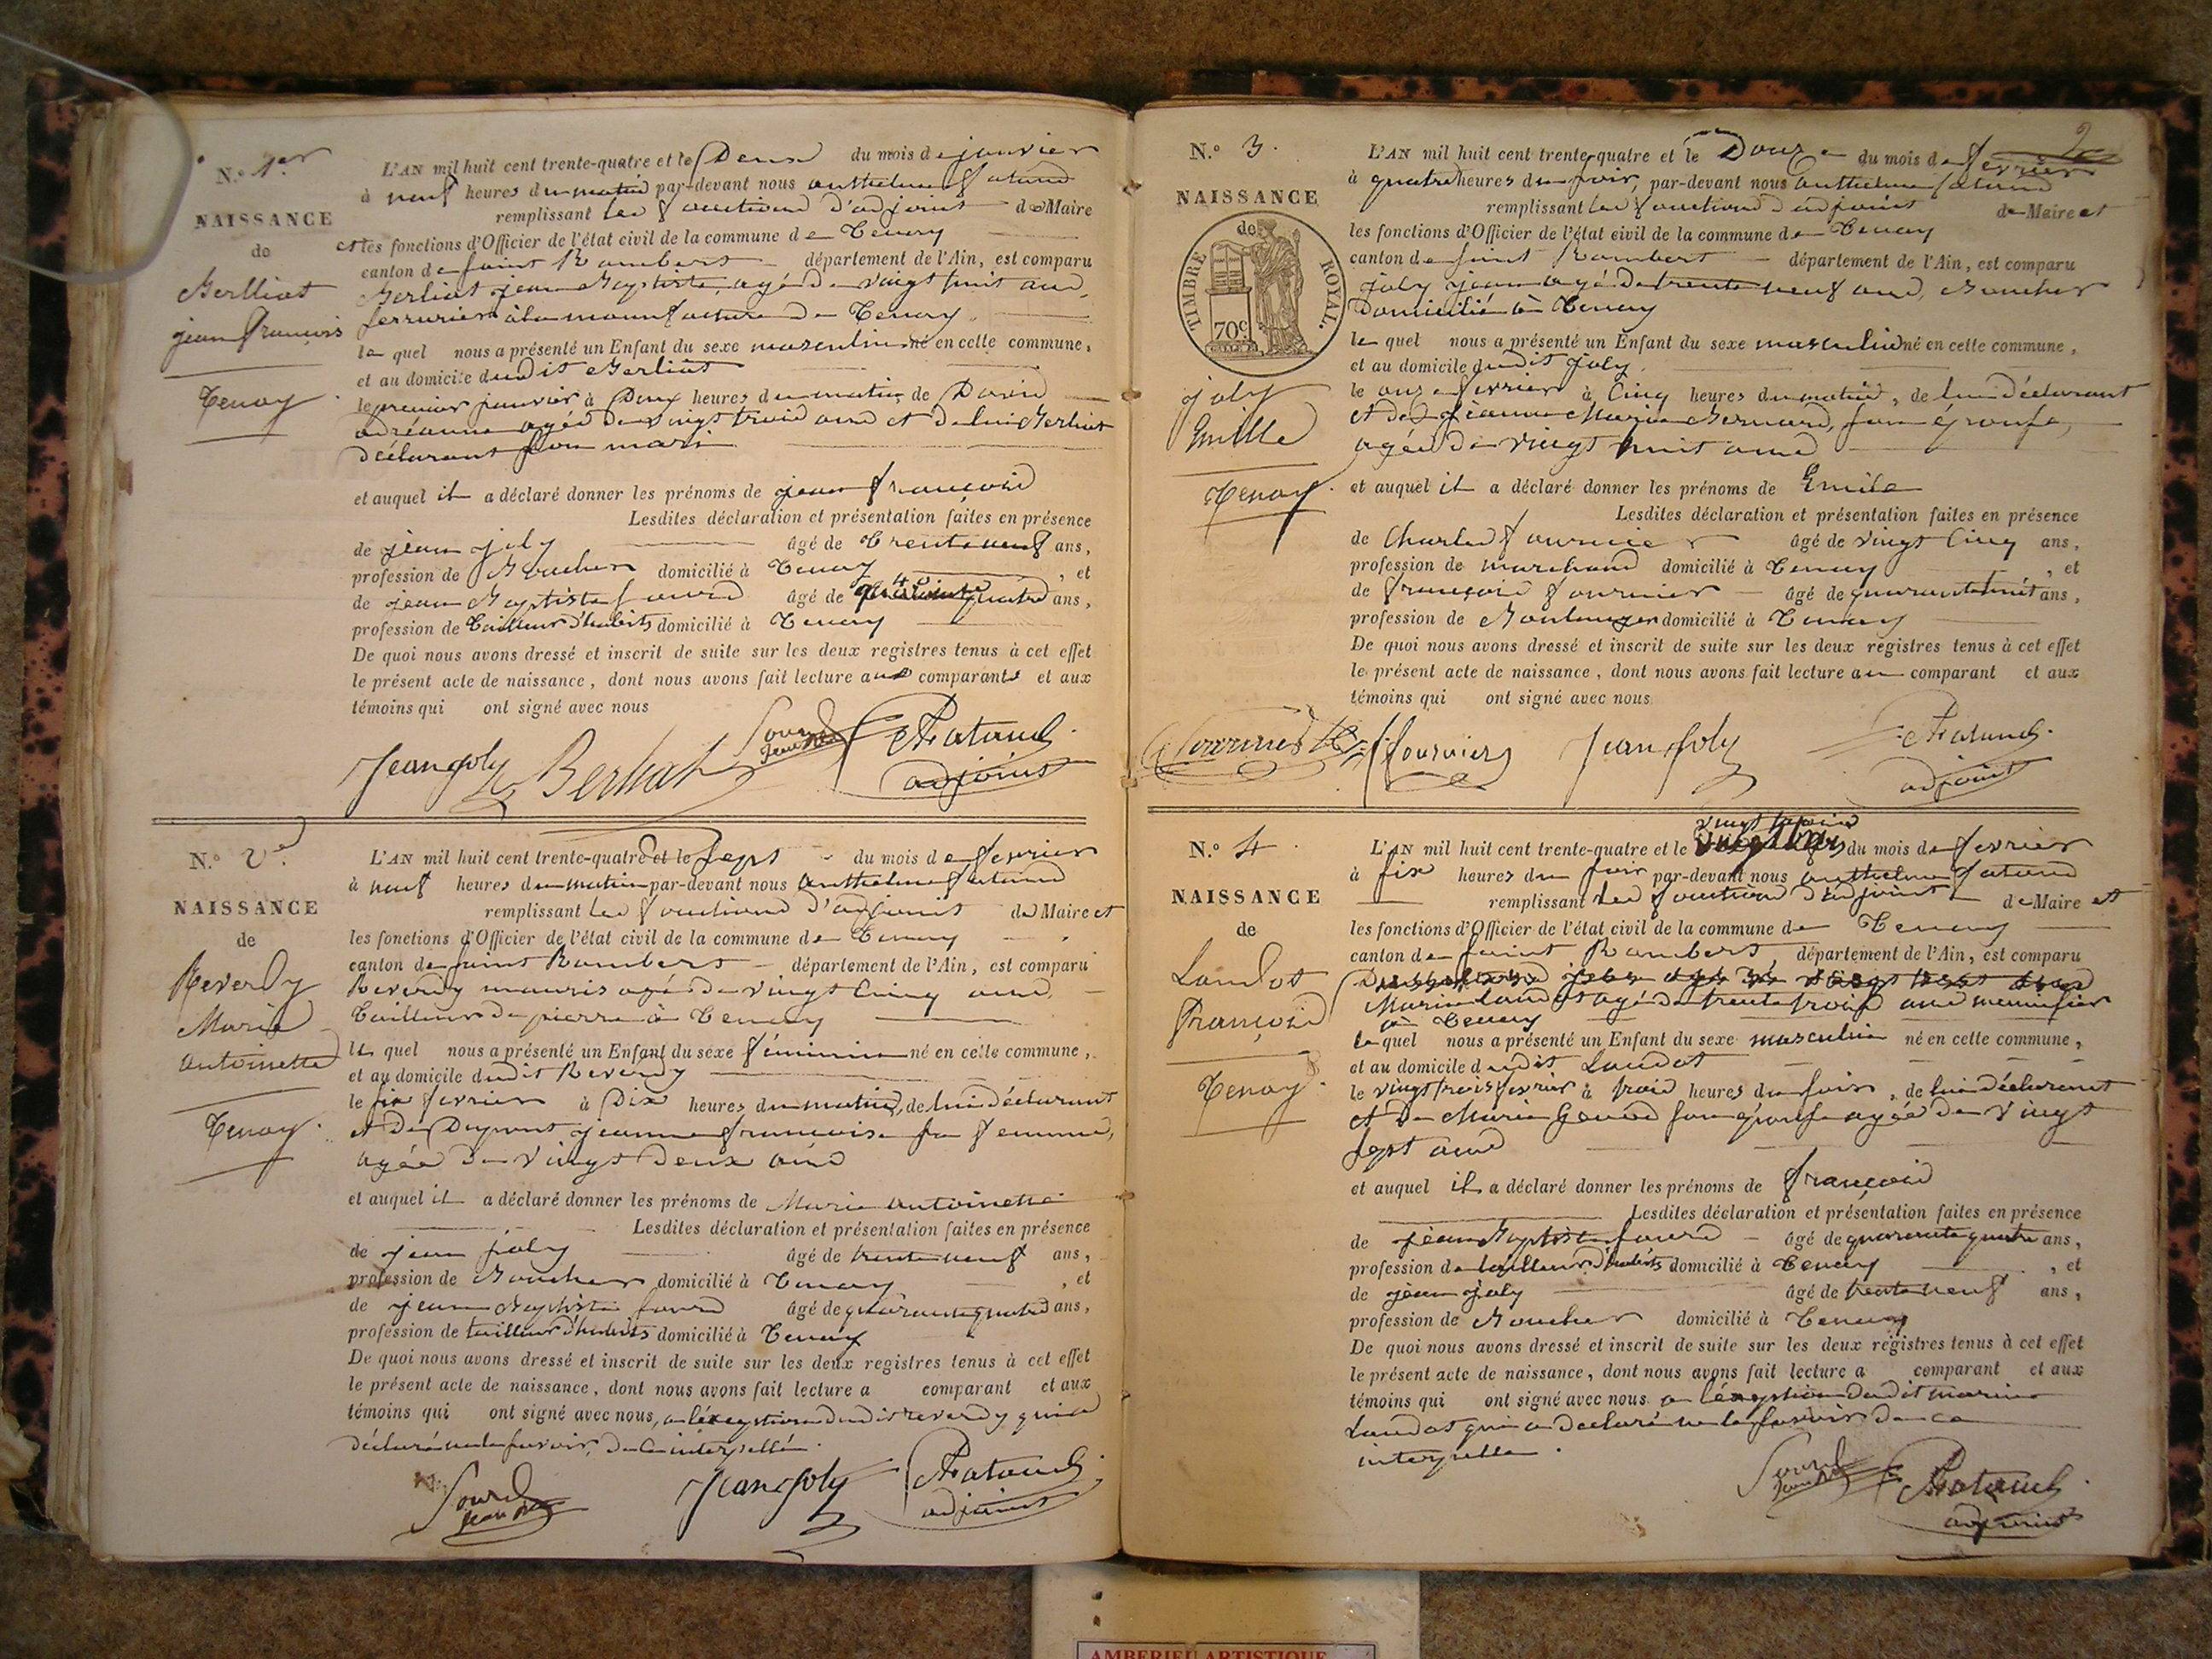 N.° 1er
NAISSANCE
de
Berlliat
jean françois
Tenay
L'AN mil huit cent trente-quatre et le Deux du mois de janvier
à neuf heures du matin par-devant nous anthelme fataud
remplissant les fonctions d'adjoint de Maire
et les fonctions d'Officier de l'état civil de la commune de Tenay
canton de saint Rambert département de l'Ain, est comparu
Berliat jean Baptiste, agé de vingt huit ans,
serrurier à la manufacture de Tenay
le quel nous a présenté un Enfant du sexe masculin né en cette commune,
et au domicile dudit Berliat
le premier janvier à Deux heures du matin, de David
adréanne agée de vingt trois ans et de lui Berliat
déclarant son mari
et auquel il a déclaré donner les prénoms de jean françois
Lesdites déclaration et présentation faites en présence
de jean joly âgé de trente neuf ans,
profession de Boucher domicilié à Tenay , et
de jean Baptiste sourd âgé de quarante quatre ans,
profession de Tailleur d'habits domicilié à Tenay
De quoi nous avons dressé et inscrit de suite sur les deux registres tenus à cet effet
le présent acte de naissance, dont nous avons fait lecture aux comparants et aux
témoins qui ont signé avec nous
Jean Joly Berliat Sourd A fataud
adjoint
N.° 2e
NAISSANCE
de
Reverdy
Marie
antoinette
Tenay
L'AN mil huit cent trente-quatre et le sept du mois de fevrier
à neuf heures du matin par-devant nous anthelme fataud
remplissant les fonctions d'adjoint de Maire et
les fonctions d'Officier de l'état civil de la commune de Tenay
canton de saint Rambert département de l'Ain, est comparu
Reverdy mauris agé de vingt cinq ans,
Tailleur de pierre à Tenay
le quel nous a présenté un Enfant du sexe féminin né en cette commune,
et au domicile dudit Reverdy
le six fevrier à Dix heures du matin, de lui déclarant
et de Dupont jeanne françoise sa femme,
agée de vingt deux ans
et auquel il a déclaré donner les prénoms de Marie antoinette
Lesdites déclaration et présentation faites en présence
de jean joly âgé de trente neuf ans,
profession de Boucher domicilié à Tenay , et
de jean Baptiste sourd âgé de quarante quatre ans,
profession de tailleur d'habits domicilié à Tenay
De quoi nous avons dressé et inscrit de suite sur les deux registres tenus à cet effet
le présent acte de naissance, dont nous avons fait lecture a comparant et aux
témoins qui ont signé avec nous, a l'éxeption dudit reverdy qui a
déclaré ne le savoir, de ce interpellé.
Sourd Jean Joly A fataud
adjoint
2
N.° 3.
NAISSANCE
de
TIMBRE ROYAL.
70c
joly
Emille
Tenay
L'AN mil huit cent trente-quatre et le Douze du mois de fevrier
à quatre heures du soir, par-devant nous anthelme fataud
remplissant les fonctions d'adjoint de Maire et
les fonctions d'Officier de l'état civil de la commune de Tenay
canton de saint Rambert département de l'Ain, est comparu
joly jean agé de trente neuf ans, Boucher
Domicilié à Tenay
le quel nous a présenté un Enfant du sexe masculin né en cette commune,
et au domicile dudit joly
le onze fevrier à Cinq heures du matin, de lui déclarant
et de jeanne Marie Bernard, son épouse,
agée de vingt huit ans
et auquel il a déclaré donner les prénoms de Emile
Lesdites déclaration et présentation faites en présence
de Charles fournier âgé de vingt Cinq ans,
profession de marchand domicilié à Tenay , et
de françois fournier âgé de quarante huit ans,
profession de Boulanger domicilié à Tenay
De quoi nous avons dressé et inscrit de suite sur les deux registres tenus à cet effet
le présent acte de naissance, dont nous avons fait lecture au comparant et aux
témoins qui ont signé avec nous
fournier Jean Joly A fataud
adjoint
N.° 4.
NAISSANCE
de
Landot
François
Tenay
L'AN mil huit cent trente-quatre et le vingt trois du mois de fevrier
à six heures du soir par-devant nous anthelme fataud
remplissant les fonctions d'adjoint de Maire et
les fonctions d'Officier de l'état civil de la commune de Tenay
canton de saint Rambert, département de l'Ain, est comparu
Marin Landot agé de trente trois ans menuisier
à Tenay
le quel nous a présenté un Enfant du sexe masculin né en cette commune,
et au domicile dudit Landot
le vingt trois fevrier à trois heures du soir, de lui déclarant
et de Marie son épouse agée de vingt
sept ans
et auquel il a déclaré donner les prénoms de françois
Lesdites déclaration et présentation faites en présence
de jean Baptiste sourd âgé de quarante quatre ans,
profession de tailleur d'habits domicilié à Tenay , et
de jean joly âgé de trente neuf ans,
profession de Boucher domicilié à Tenay
De quoi nous avons dressé et inscrit de suite sur les deux registres tenus à cet effet
le présent acte de naissance, dont nous avons fait lecture a comparant et aux
témoins qui ont signé avec nous a l'éxeption dudit marin
Landot qui a declaré ne le savoir de ce
interpellé.
Sourd A fataud
adjoint
AMBERIEU ARTISTIQUE